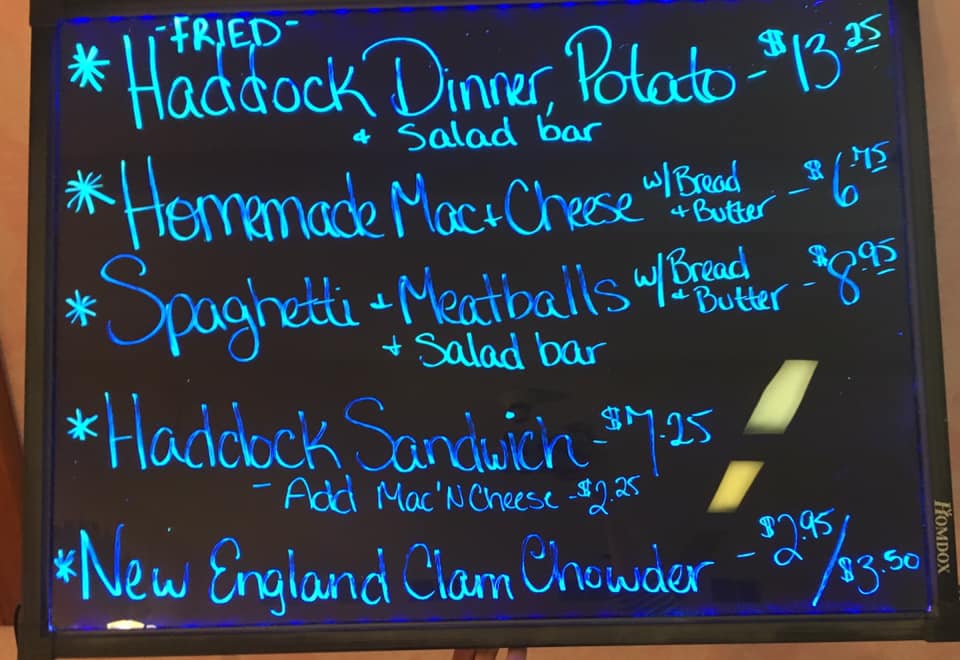 -FRIED-
* Haddock Dinner, Potato - $13.25
+ Salad bar
* Homemade Mac + Cheese w/ Bread + Butter - $6.75
* Spaghetti + Meatballs w/ Bread + Butter - $8.95
+ Salad bar
* Haddock Sandwich - $7.25
- Add Mac 'N Cheese - $2.25
* New England Clam Chowder - $2.95/$3.50
HOMDOX